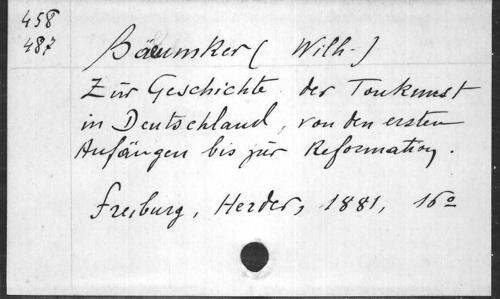 458
487
Bäumker ( Wilh. )
Zur Geschichte der Tonkunst
in Deutschland, von den ersten
Anfängen bis zur Reformation.
Freiburg, Herder, 1881, 16º